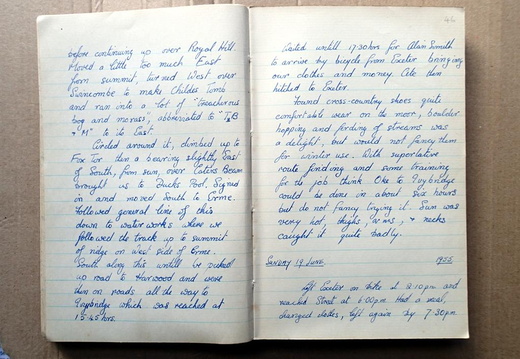 before continuing up over Royal Hill.
Moved a little too much East
from summit, turned West over
Swincombe to make Childes Tomb
and ran into a lot of "Treacherous
bog and morass", abbreviated to "T.B
& M" to its East.
Circled around it, climbed up to
Fox Tor then a bearing slightly East
of South, from sun, over Caters Beam
brought us to Ducks Pool. Signed
in and moved South to Erme.
Followed general line of this
down to water works where we
followed the track up to summit
of ridge on West side of Erme.
South along this untill we picked
up road to Harwood and were
then on roads all the way to
Ivybridge which was reached at
15.45 hrs.
46
Waited untill 17.30 hrs. for Alain
to arrive by bicycle from Exeter bringing
our clothes and money. Ate then
hitched to Exeter.
Found cross-country shoes quite
comfortable wear on the moor, boulder
hopping and fording of streams was
a delight, but would not fancy them
for winter use. With superlative
route finding and some training
for the job think Oke to Ivybridge
could be done in about six hours
but do not fancy trying it. Sun was
very hot, thighs, arms, & necks
caught it quite badly.
SUNDAY 19 JUNE. 1955
Left Exeter on bike at 2.10 pm and
reached Street at 6.00 pm. Had a meal,
changed clothes, left again by 7.30 pm